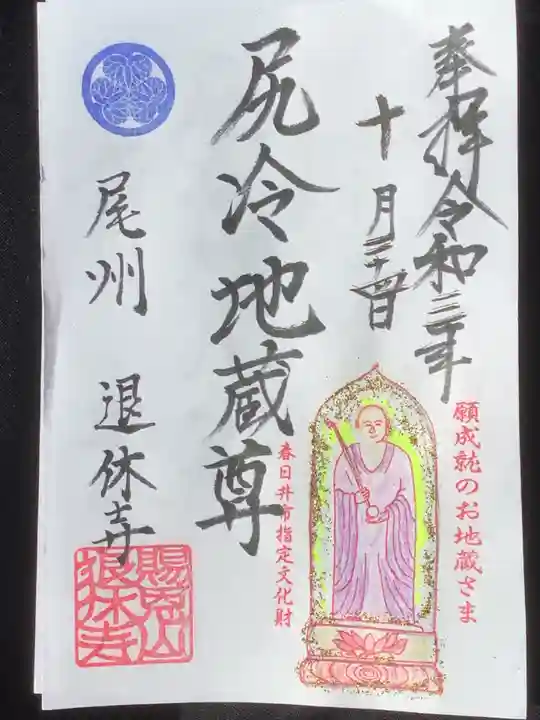 奉拝令和三年
十月二十四日
願成就のお地蔵さま
尻冷地蔵尊
春日井市指定文化財
尾州 退休寺
賜恩山
退休寺